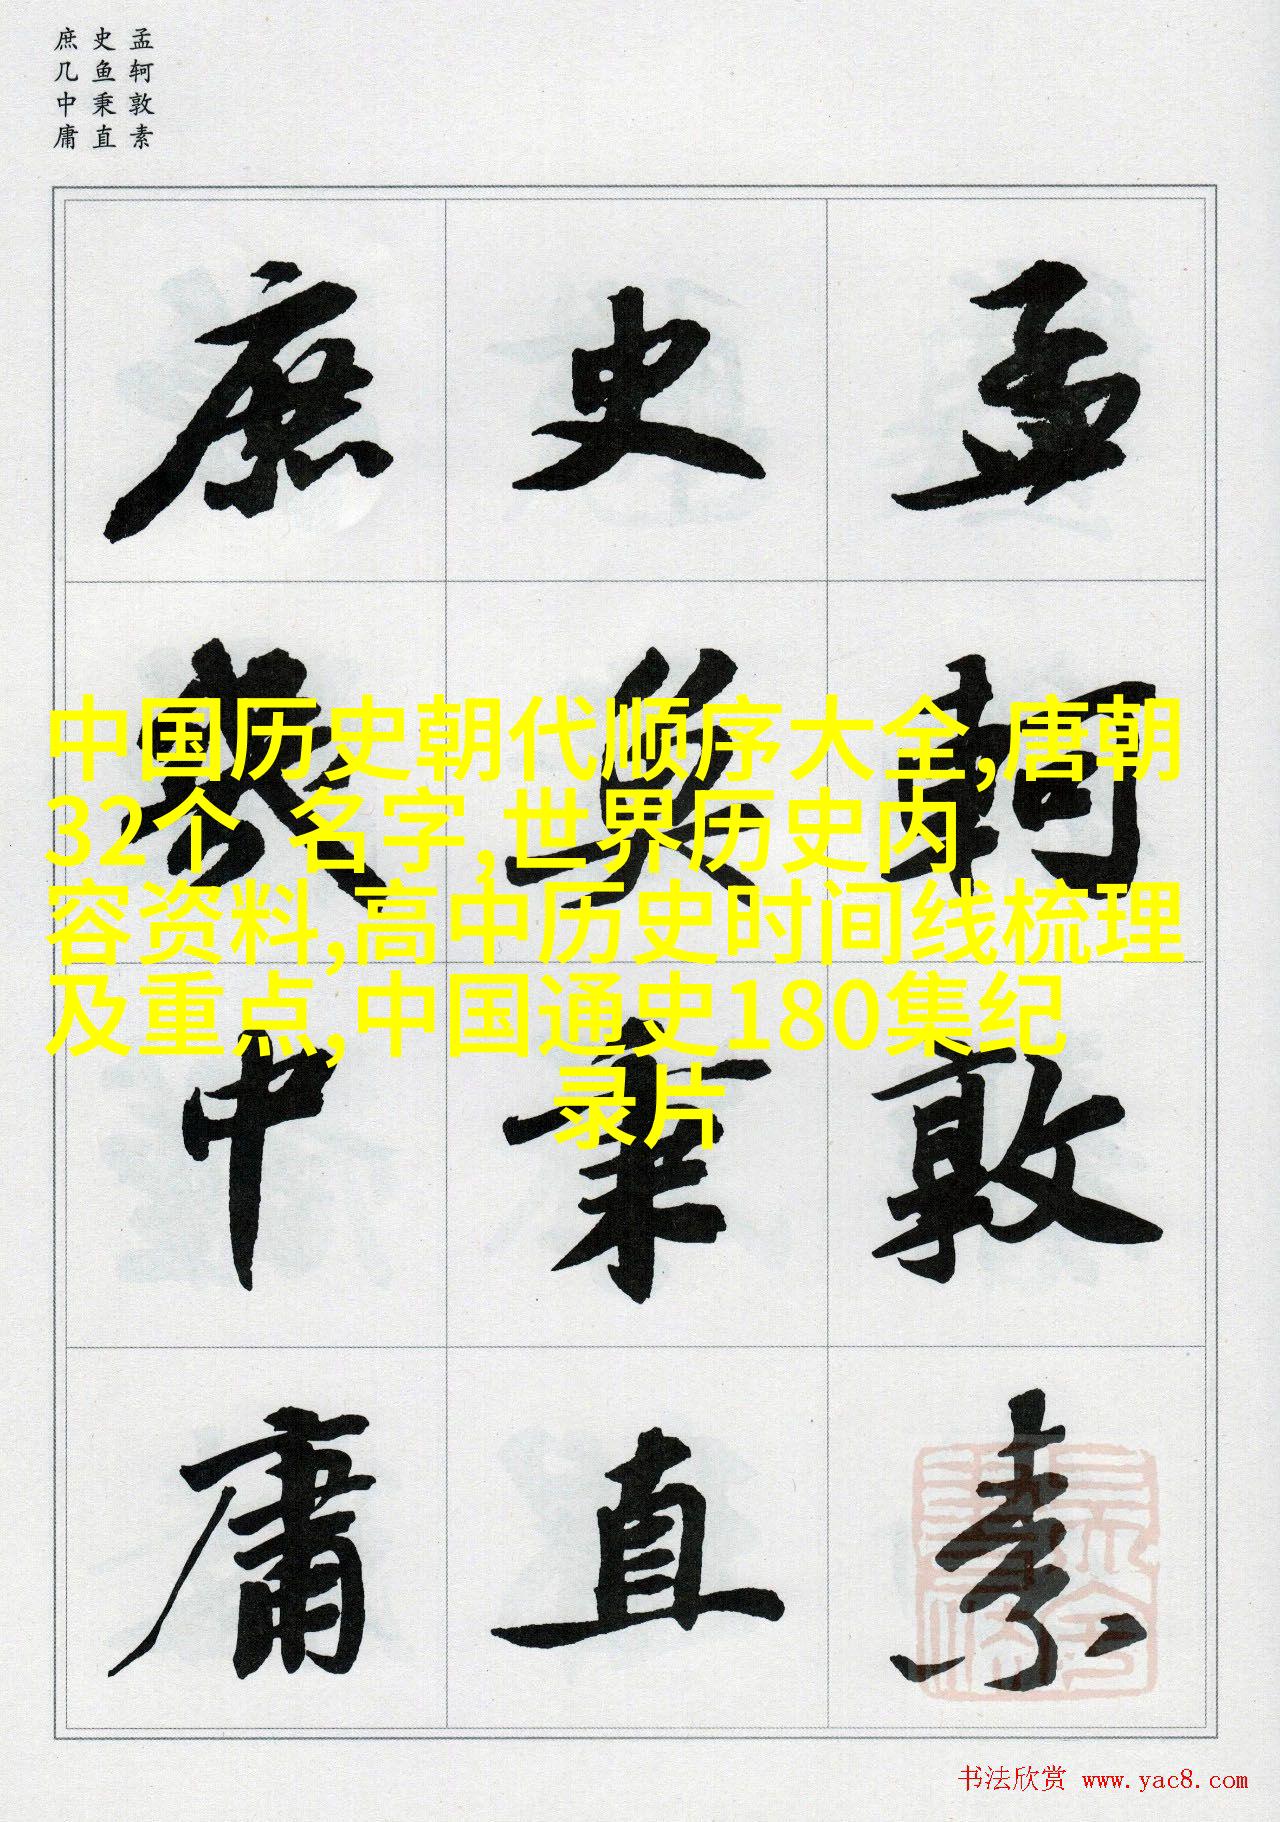 孟轲敦素
史鱼秉直
庶几中庸
孟軻敦素
史魚秉直
庶幾中庸
中国历史朝代顺序大全,唐朝
32个 名字,世界历史内
容资料,高中历史时间线梳理
及重点,中国通史180集纪
录片
书法欣赏 www.yac8.com